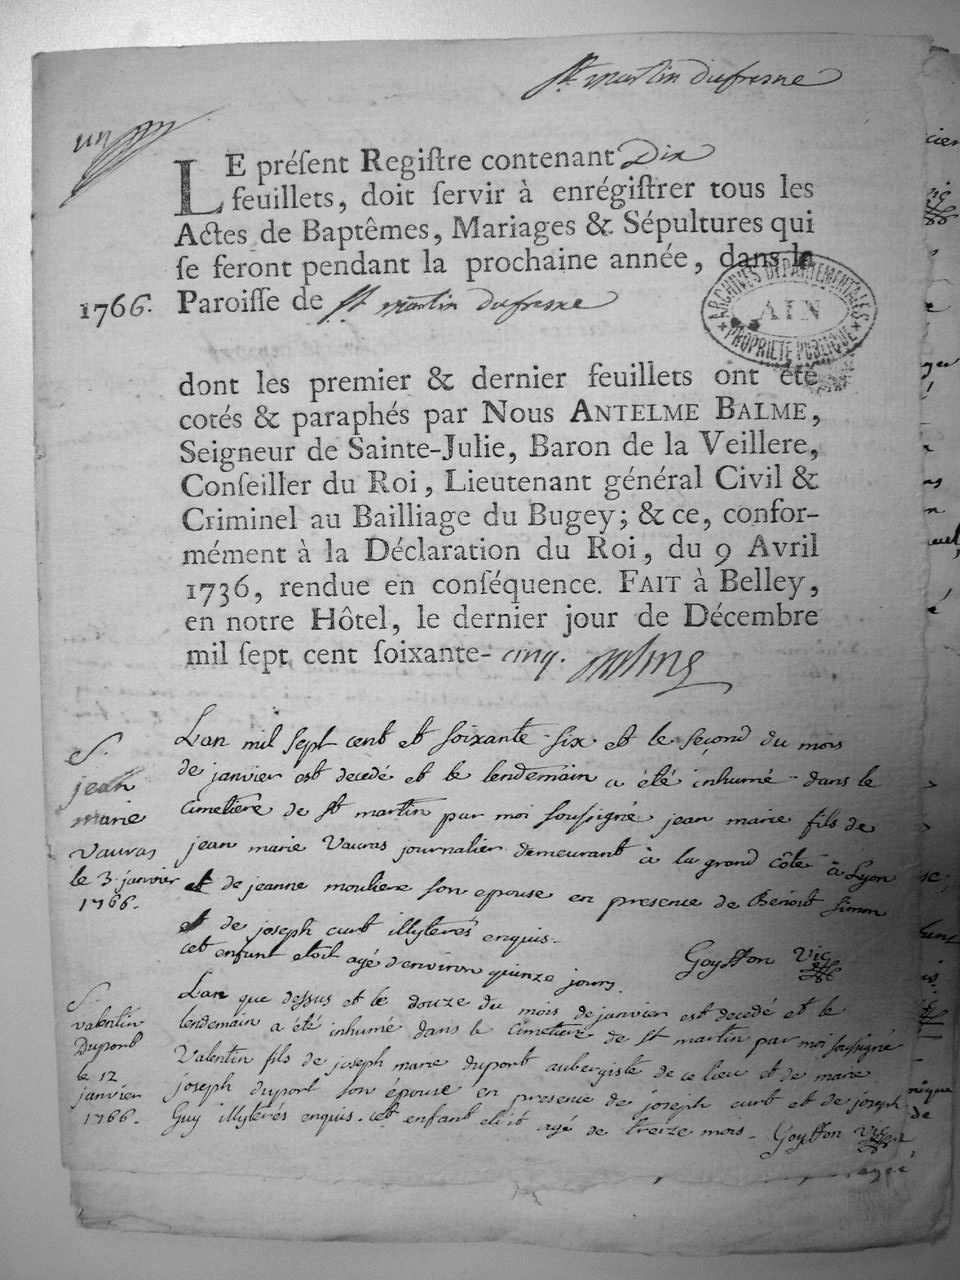 St martin dufresne
un
LE préſent Regiſtre contenant Dix
feuillets, doit ſervir à enrégiſtrer tous les
Actes de Baptêmes, Mariages & Sépultures qui
ſe feront pendant la prochaine année, dans la
1766. Paroiſſe de St martin dufresne
ARCHIVES DÉPARTEMENTALES
AIN
PROPRIÉTÉ PUBLIQUE
dont les premier & dernier feuillets ont été
cotés & paraphés par Nous ANTELME BALME,
Seigneur de Sainte-Julie, Baron de la Veillere,
Conſeiller du Roi, Lieutenant général Civil &
Criminel au Bailliage du Bugey; & ce, confor-
mément à la Déclaration du Roi, du 9 Avril
1736, rendue en conſéquence. FAIT à Belley,
en notre Hôtel, le dernier jour de Décembre
mil ſept cent ſoixante- cinq. Balme
S.
jean
marie
Vauras
le 3 janvier
1766.
Lan mil sept cent et soixante six et le second du mois
de janvier est decedé et le lendemain a été inhumé dans le
cimetière de st martin par moi soussigné jean marie fils de
jean marie Vauras journalier demeurant à la grand côte à Lyon
et de jeanne mouliere son epouse en presence de Benoit Simon
et de joseph curt illyterés enquis.
cet enfant etoit agé d'environ quinze jours. Goyffon Vic
S.
valentin
Dupont
le 12
janvier
1766.
Lan que dessus et le douze du mois de janvier est decedé et le
lendemain a été inhumé dans le cimetiere de st martin par moi soussigné
Valentin fils de joseph marie dupont aubergiste de ce lieu et de marie
joseph dupont son épouse en presence de joseph curt et de joseph
Guy illyterés enquis. cet enfant etoit agé de treize mois. Goyffon Vic